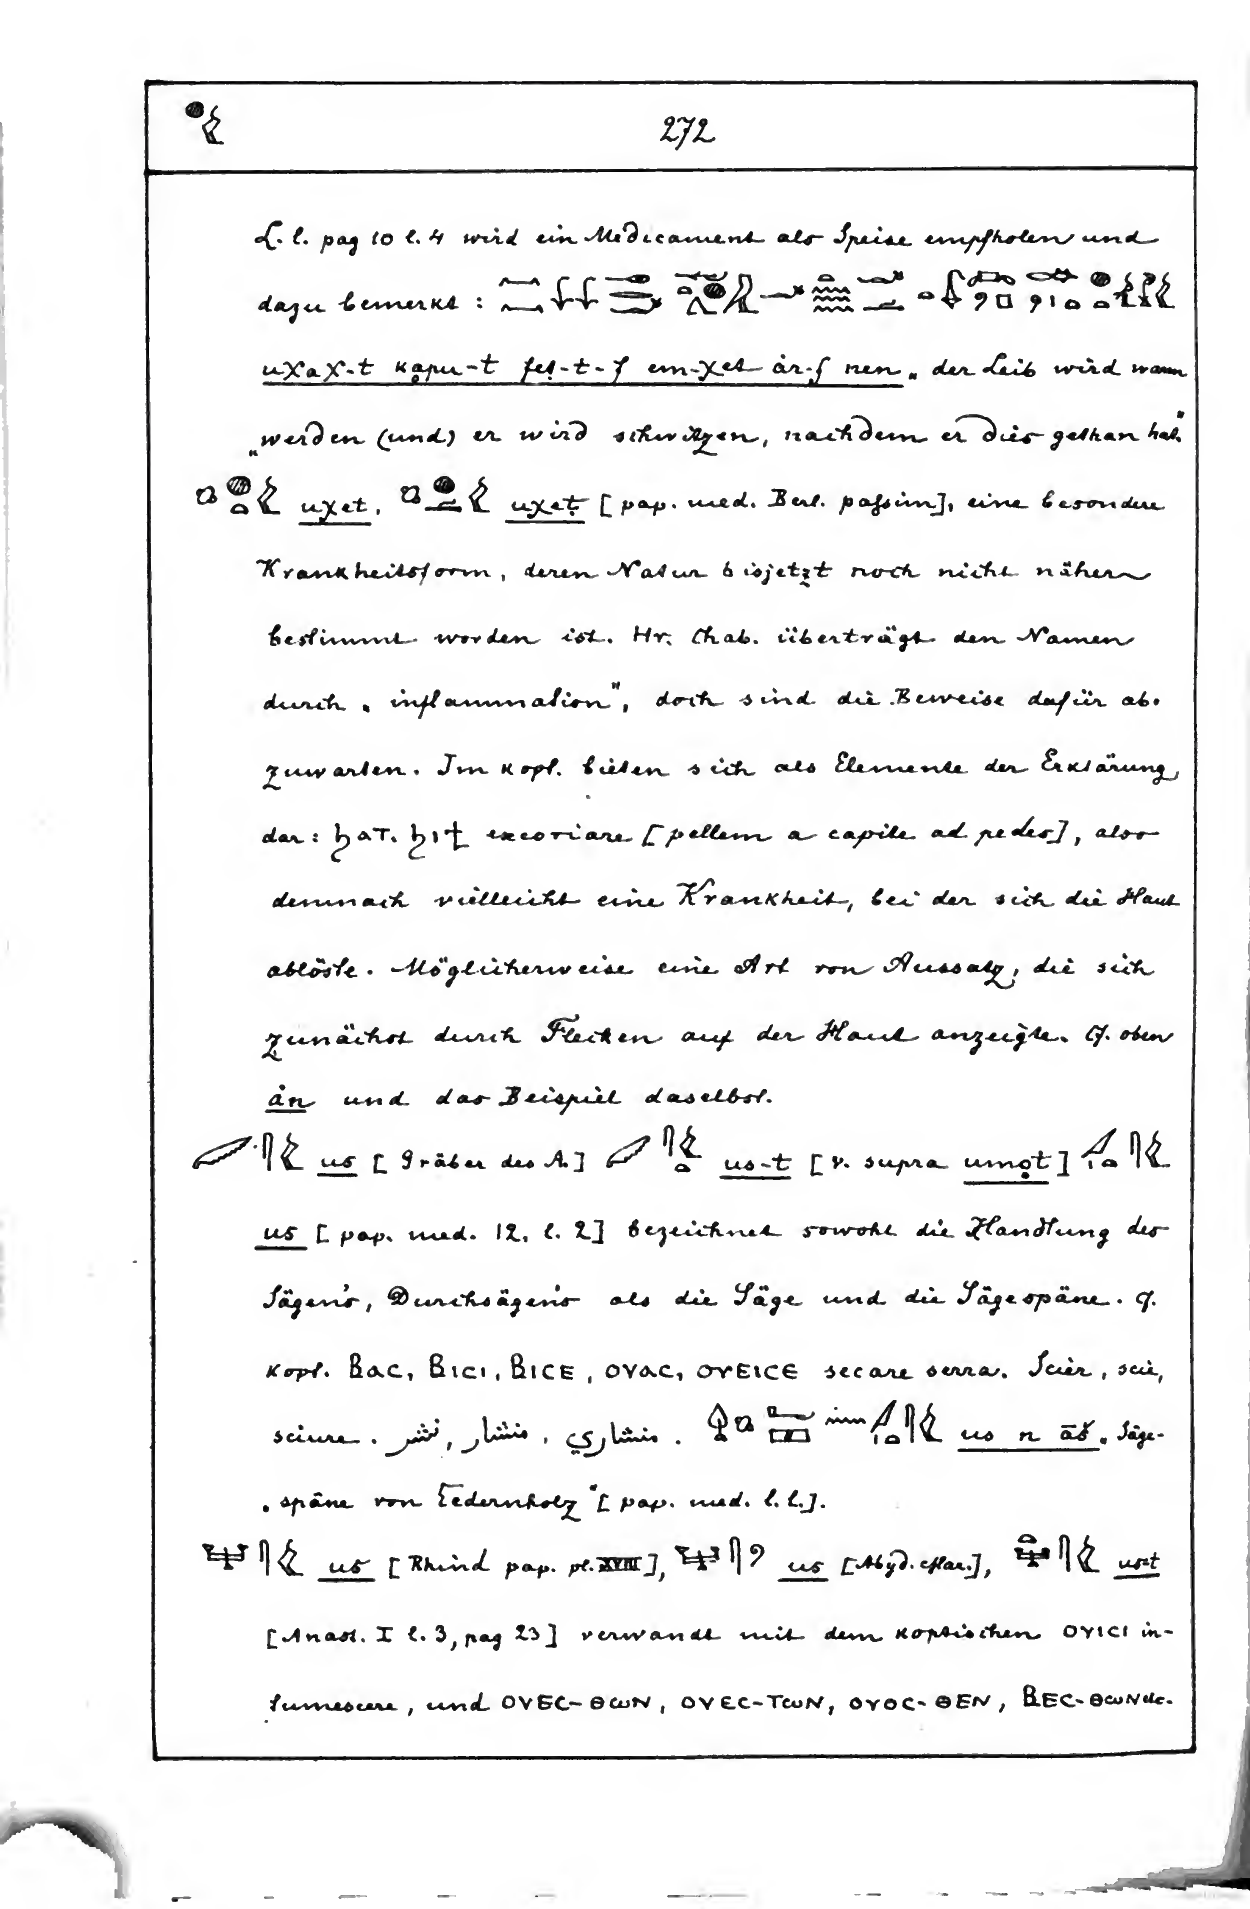 272
L. l. pag 10 l. 4 wird ein Medicament als Speise empfholen und
dazu bemerkt :
uχaχ-t ḳapu-t feṭ-t-f em-χet ȧr-f nen „ der Leib wird warm
„werden (und) er wird schwitzen, nachdem er dies gethan hat."
uχet, uχeṭ [ pap. med. Berl. passim], eine besondere
Krankheitsform, deren Natur bisjetzt noch nicht näher
bestimmt worden ist. Hr. Chab. überträgt den Namen
durch „ inflammation", doch sind die Beweise dafür ab-
zuwarten. Im kopt. bieten sich als Elemente der Erklärung
dar : ϧⲁⲧ. ϧⲓϯ excoriare [ pellem a capite ad pedes], also
demnach vielleicht eine Krankheit, bei der sich die Haut
ablöste. Möglicherweise eine Art von Aussatz, die sich
zunächst durch Flecken auf der Haut anzeigte. Cf. oben
ȧn und das Beispiel daselbst.
us [ Gräber des A.] us-t [ v. supra umoṭ ]
us [ pap. med. 12, l. 2] bezeichnet sowohl die Handlung des
Sägen's, Durchsägen's als die Säge und die Sägespäne. Cf.
kopt. ⲃⲁⲥ, ⲃⲓⲥⲓ, ⲃⲓⲥⲉ, ⲟⲩⲁⲥ, ⲟⲩⲉⲓⲥⲉ secare serra. Scier, scie,
sciure. نشر , منشار , منشاري . us n āš „ Säge-
„ späne von Cedernholz " [ pap. med. l. l.].
us [ Rhind pap. pl. XVIII ], us [Abyd. ], us-t
[Anast. I l. 3, pag 23 ] verwandt mit dem koptischen ⲟⲩⲓⲥⲓ in-
tumescere, und ⲟⲩⲉⲥ-ⲑⲱⲛ, ⲟⲩⲉⲥ-ⲧⲱⲛ, ⲟⲩⲟⲥ-ⲑⲉⲛ, ⲃⲉⲥ-ⲑⲱⲛ etc.